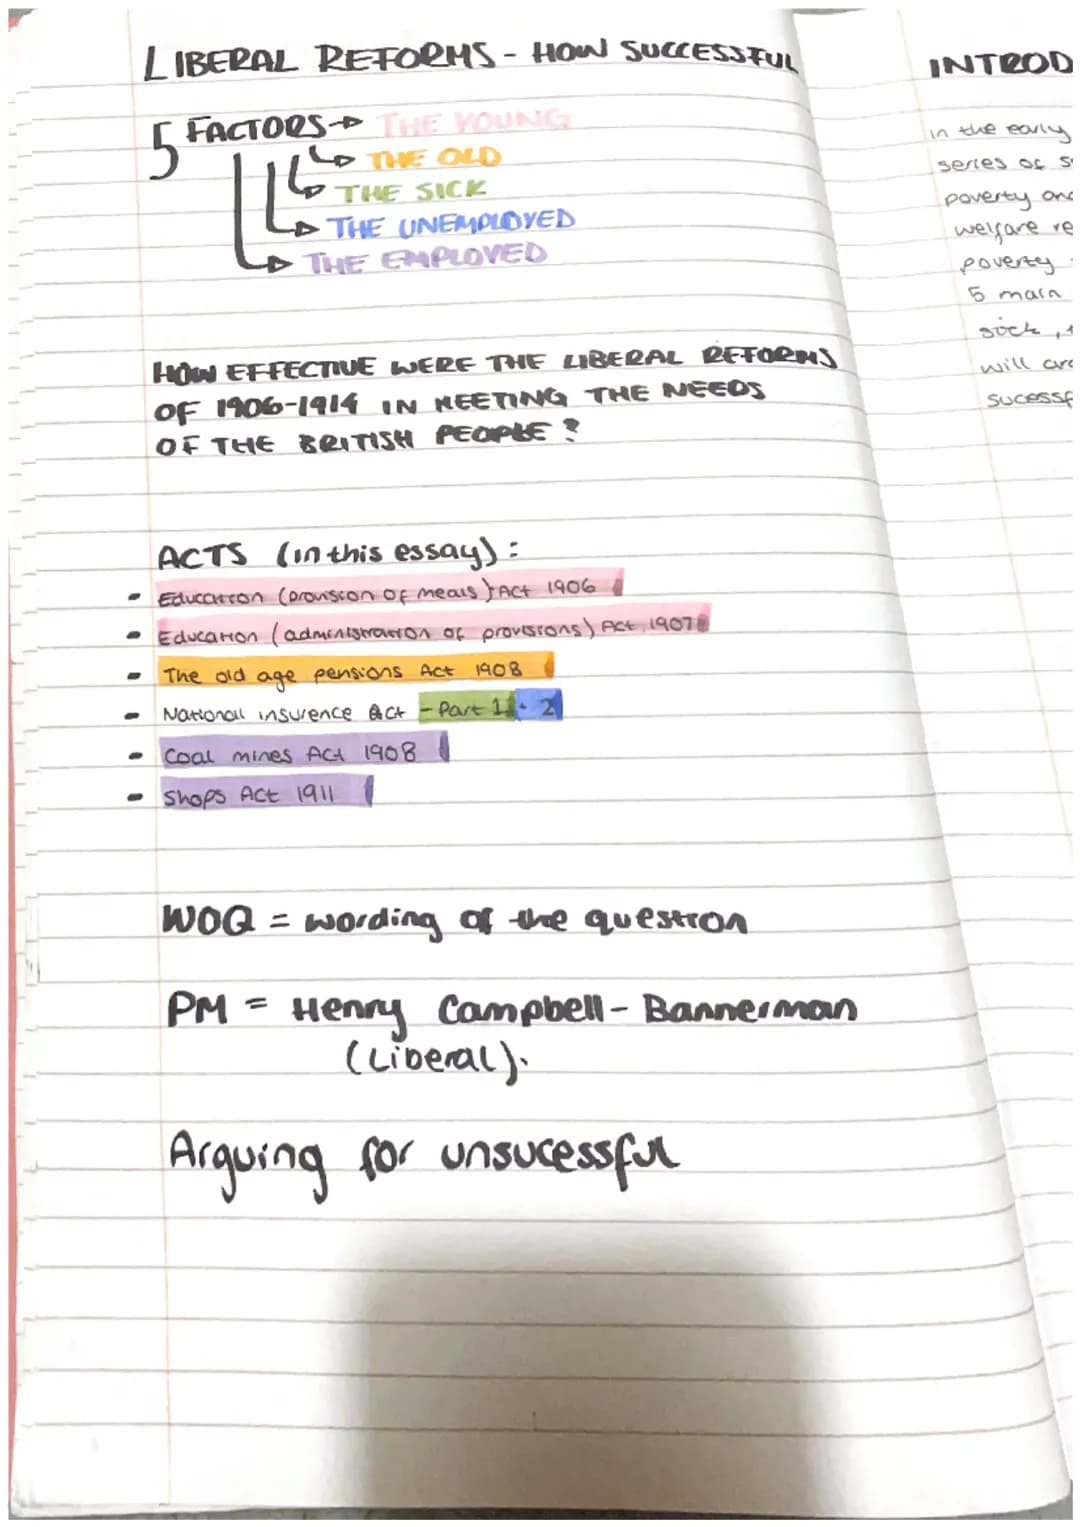 LIBERAL REFORMS - HOW SUCCESSFUL
5 FACTORS → THE YOUNG
THE OLD
THE SICK
THE UNEMPLOYED
THE EMPLOYED
HOW EFFECTIVE WERE THE LIBERAL REFORMS
OF 1906-1914 IN MEETING THE NEEDS
OF THE BRITISH PEOPLE?
ACTS (in this essay):
- Education (provision of meals) Act 1906
- Education (administration of provisions) Act 1907
- The old age pensions Act 1908
- National insurence Act - Part 1 - 2
- Coal mines Act 1908
- Shops Act 1911
WOQ = wording of the question
PM = Henry Campbell-Bannerman
(Liberal).
Arguing for unsucessful
INTROD
in the early
series of s
poverty and
welfare re
poverty
5 main
sick, t
will arg
sucessf